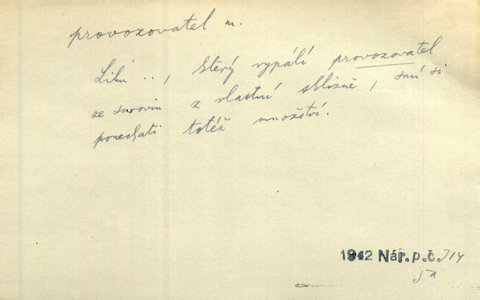 provozovatel m.
Lihu .., který vypálí provozovatel
ze surovin z vlastní sklizně, smí si
ponechati totéž množství.
1942 Nář. p. č. 314
5a